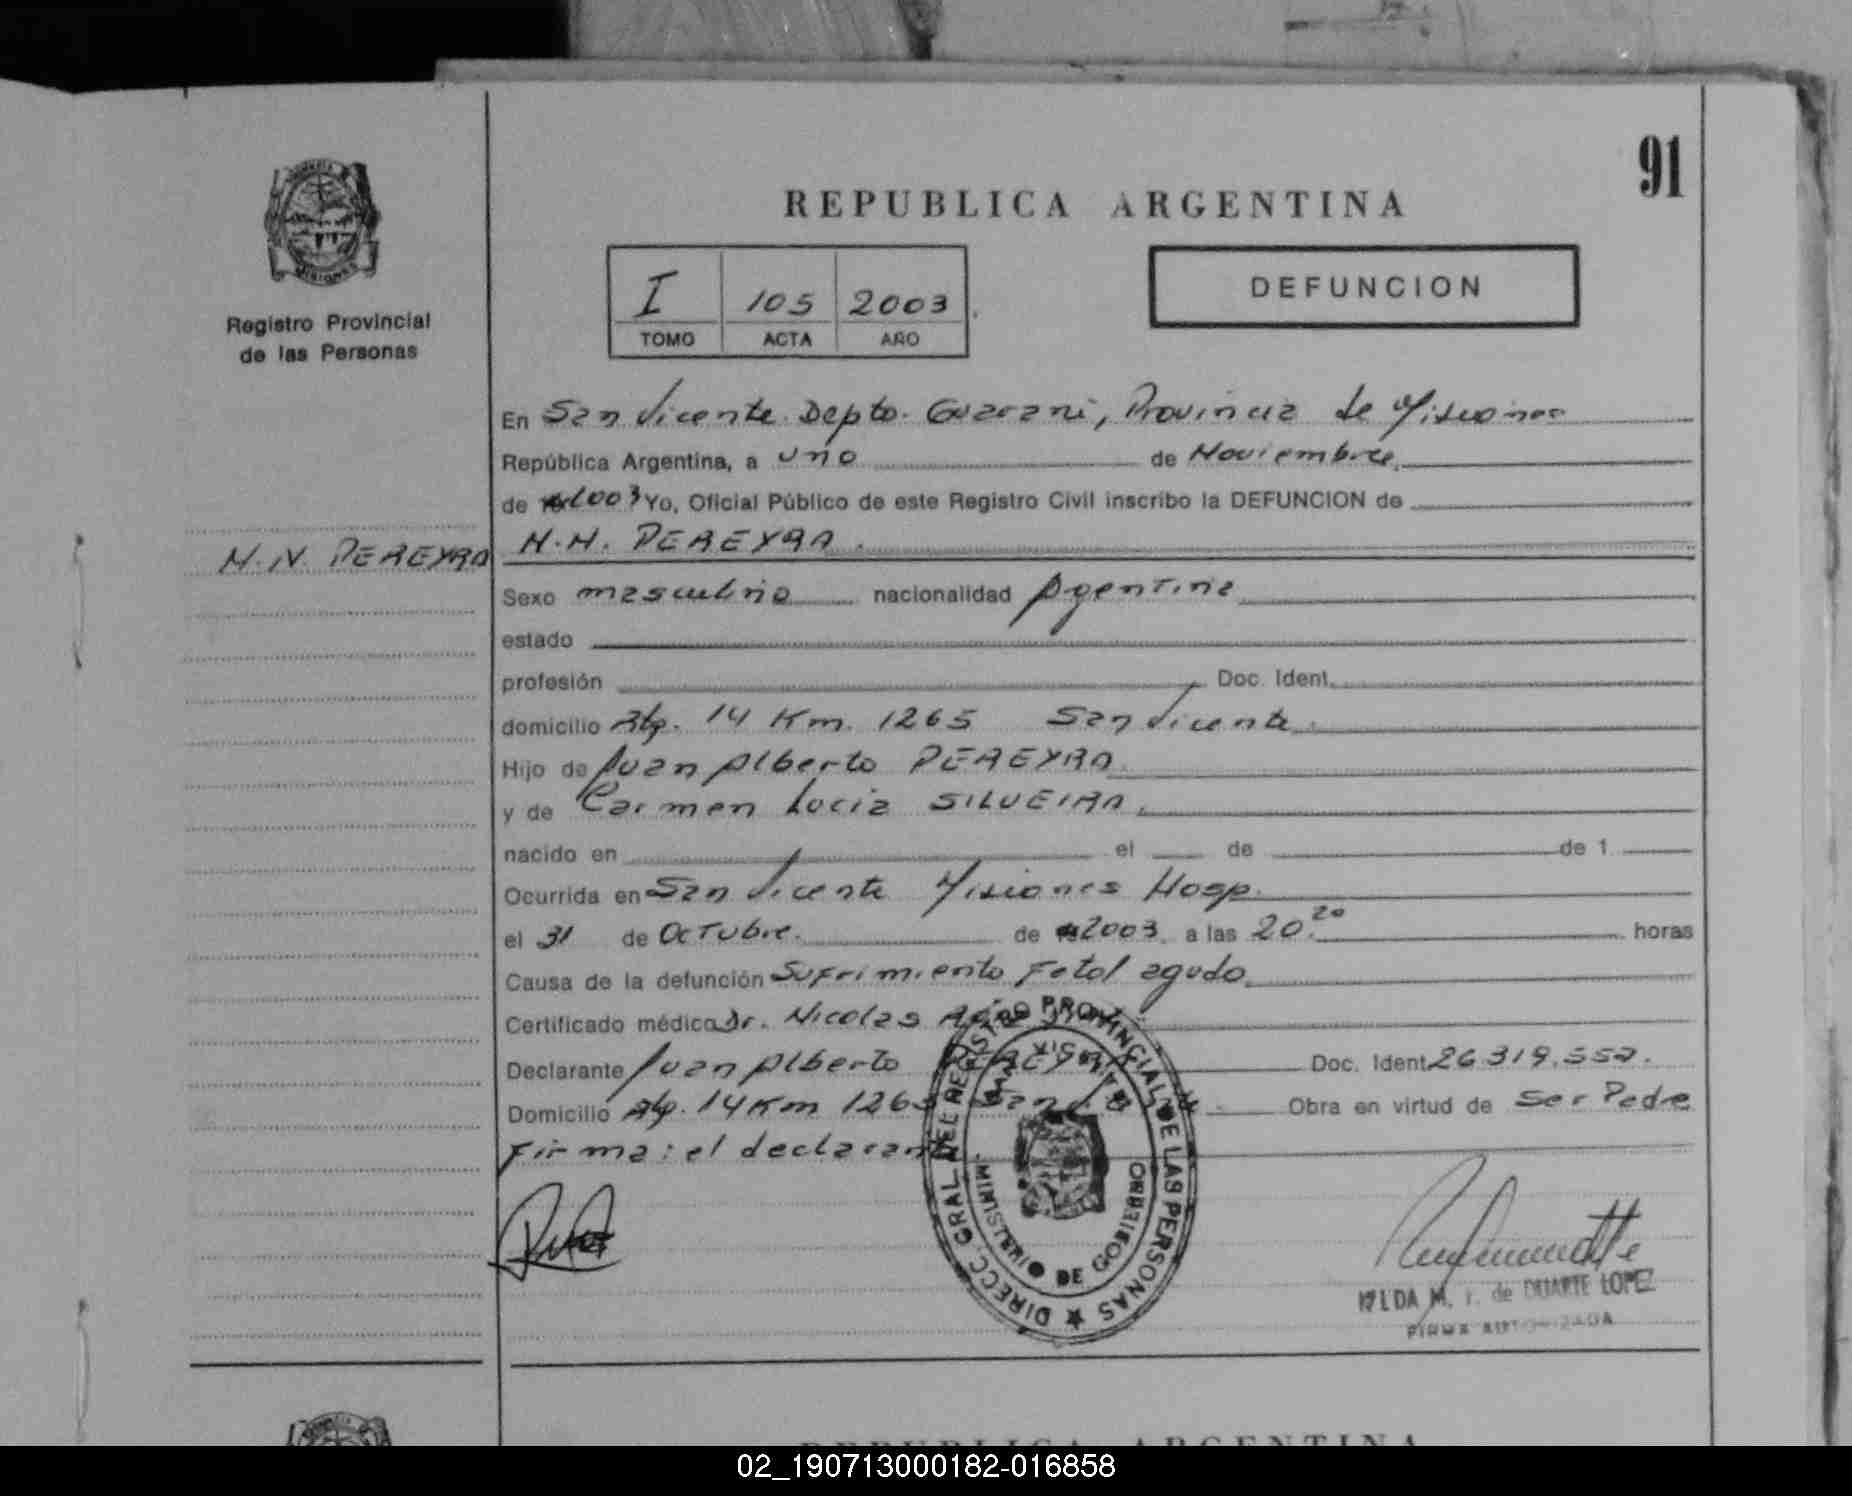 91
REPUBLICA ARGENTINA
MISIONES
Registro Provincial
de las Personas
I 105 2003
TOMO ACTA AÑO
DEFUNCION
En San Vicente Depto. Guarani, Provincia de Misiones
República Argentina, a uno de Noviembre
de 2003 Yo, Oficial Público de este Registro Civil inscribo la DEFUNCION de
N.N. PEREYRA N.N. PEREYRA.
Sexo masculino nacionalidad Argentina
estado
profesión Doc. Ident.
domicilio Rta. 14 Km. 1265 San Vicente.
Hijo de Juan Alberto PEREYRA
y de Carmen Lucia SILVEIRA.
nacido en el de de 1
Ocurrida en San Vicente Misiones Hosp.
el 31 de Octubre. de 2003. a las 20.20 horas
Causa de la defunción Sufrimiento Fetal agudo.
Certificado médico Dr. Nicolas
Declarante Juan Alberto PEREYRA Doc. Ident. 26.319.552.
Domicilio Rta. 14 Km 1265 San Obra en virtud de Ser Padre
Firma: el declarante
DIRECC. GRAL. DEL REGISTRO PROVINCIAL DE LAS PERSONAS
MINISTERIO DE GOBIERNO
SAN VICENTE
de DUARTE LOPEZ
FIRMA AUTORIZADA
REPUBLICA ARGENTINA
02_190713000182-016858